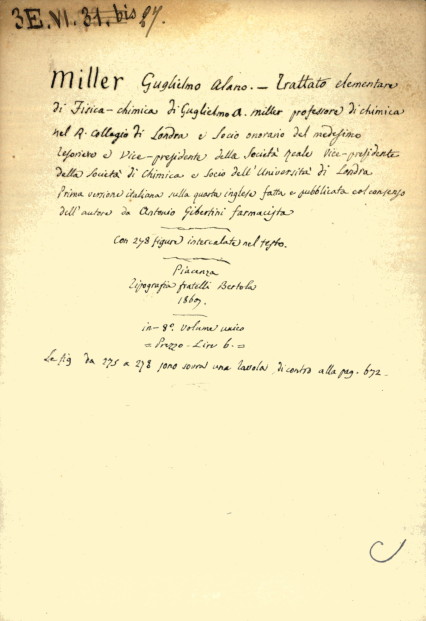 3E.VI.31.bis 27.
Miller Guglielmo Alano. — Trattato elementare
di Fisica-chimica di Guglielmo A. Miller professore di chimica
nel R. Collagio di Londra e Socio onorario del medesimo
Tesoriero e Vice-presidente della Società Reale Vice-presidente
della Società di Chimica e Socio dell'Università di Londra
Prima versione italiana sulla quarta inglese fatta e pubblicata col consenso
dell'autore da Antonio Gibertini farmacista
Con 278 figure intercalate nel testo.
Piacenza
Tipografia fratelli Bertola
in-8º. Volume unico
= Prezzo. Lire 6. =
Le fig da 275 a 278 sono sovra una tavola, dicontro alla pag. 672.